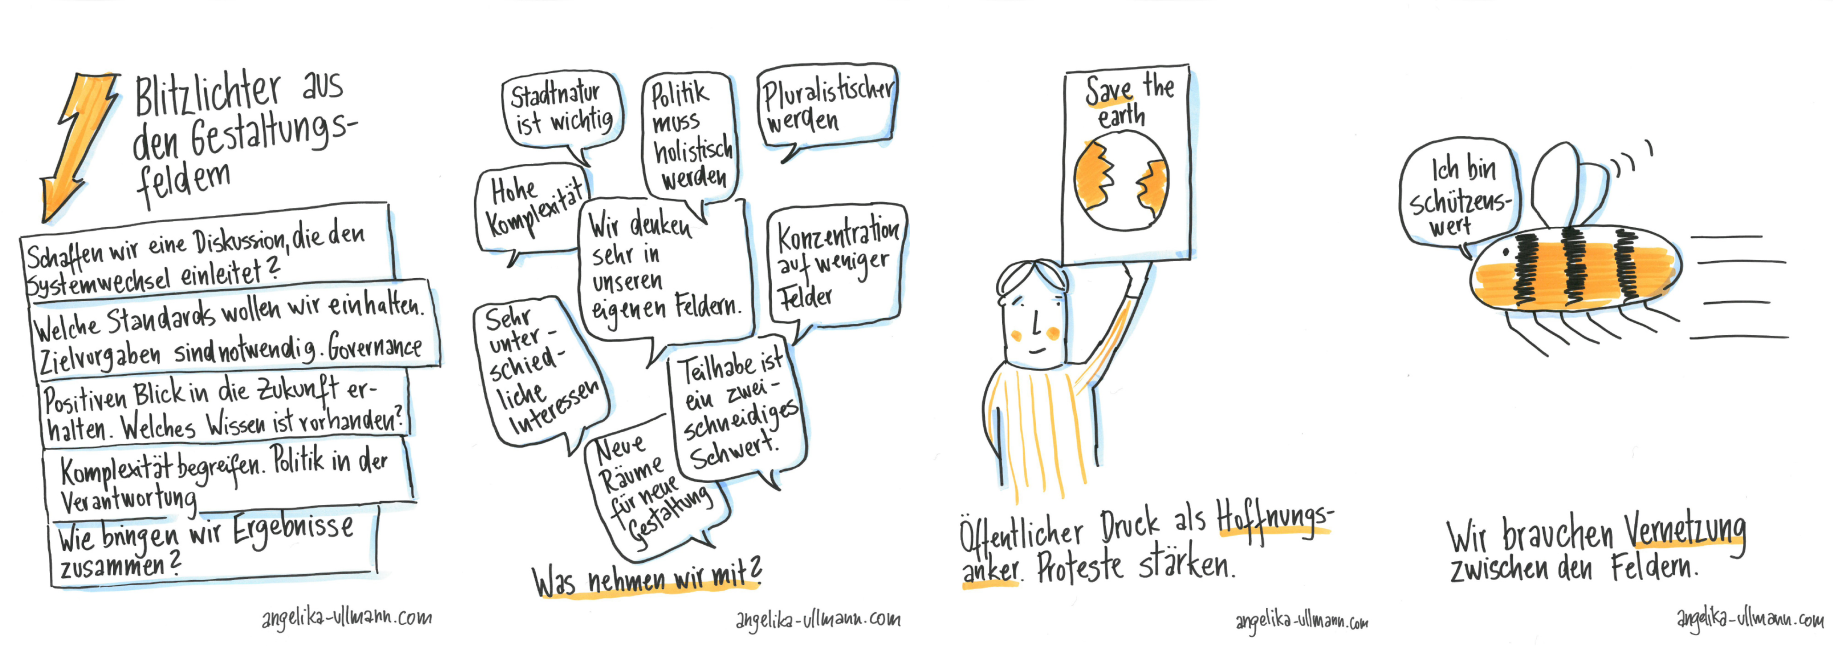 Blitzlichter aus
den Gestaltungs-
feldern
Schaffen wir eine Diskussion, die den
Systemwechsel einleitet?
Welche Standards wollen wir einhalten.
Zielvorgaben sind notwendig. Governance
Positiven Blick in die Zukunft er-
halten. Welches Wissen ist vorhanden?
Komplexität begreifen. Politik in der
Verantwortung
Wie bringen wir Ergebnisse
zusammen?
angelika-ullmann.com
Stadtnatur
ist wichtig
Politik
muss
holistisch
werden
Pluralistischer
werden
Hohe
Komplexität
Wir denken
sehr in
unseren
eigenen Feldern.
Konzentration
auf weniger
Felder
Sehr
unter-
schied-
liche
Interessen
Teilhabe ist
ein zwei-
schneidiges
Schwert.
Neue
Räume
für neue
Gestaltung
Was nehmen wir mit?
angelika-ullmann.com
Save the
earth
Öffentlicher Druck als Hoffnungs-
anker. Proteste stärken.
angelika-ullmann.com
Ich bin
schützens-
wert
Wir brauchen Vernetzung
zwischen den Feldern.
angelika-ullmann.com